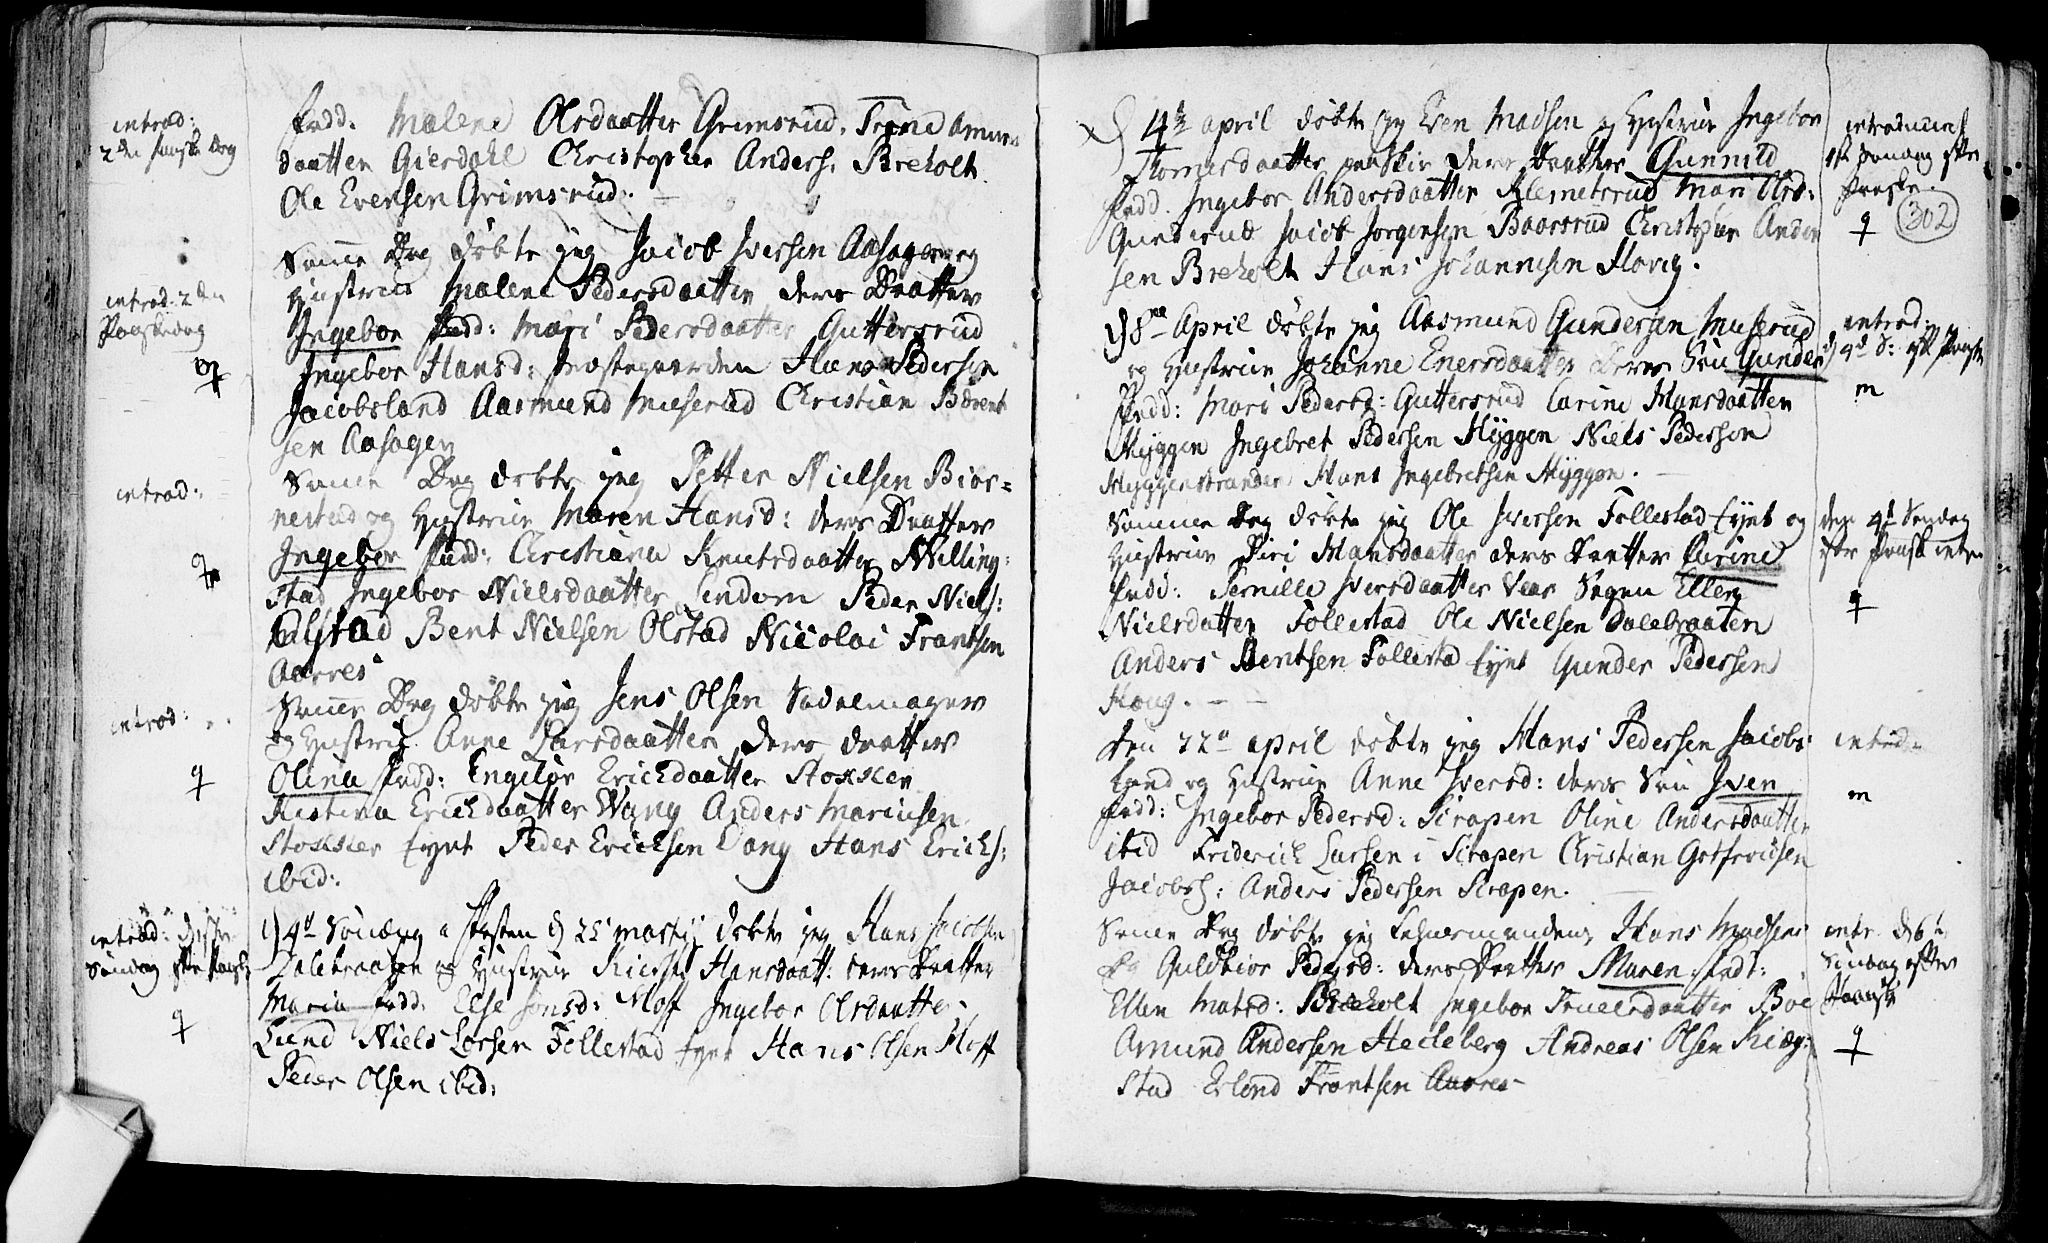 introd:
2den Paaske Dag
Fadd. Malene Olsdaatter Grimsrud, Trond Amuns
daatter Gierdahl Christopher Anders: Breholt
Ole Evensen Grimsrud.
Samme Dag døbte jeg Jacob Iversen Aasagen og
Hustrue Malene Pedersdaatter deres Daatter
introd: 2den
Paaskedag
Ingebor Fadd: Mari Pedersdaatter Guttersrud
Ingebor Hansd: Præstegaarden Hans Pedersen
Jacobsland Aasmund Muserud Christian Bærent
sen Aasagen
introd:
Samme Dag døbte jeg Petter Nielsen Biør=
nestad og Hustrue Maren Hansd: deres Daatter
Ingebor Fadd: Christiana Knutsdaatter Nilling:
stad Ingebor Nielsdaatter Peder Niels:
Olstad Bent Nielsen Olstad Nicolai Frantsen
Aarres
introd:
Samme Dag døbte jeg Jens Olsen Sadelmager
og Hustrue Anne Larsdaatter deres daatter
Olina Fadd: Engebor Erichdaatter Stokker
Kistina Erichdaatter Wang Anders Mariusen
Stokker Eyet Peder Erichsen Vang Hans Erichs:
ibid:
introd:
Søndag efter Paaske
D 4de Søndag i Fasten d 25 Martij døbte jeg Hans Jacobsen
Dalebraaten og Hustrue Hansdaatt: deres daatter
Maria Fadd: Else Jonsd: Hoff Ingebor Olsdaatter
Lund Niels Larsen Follestad Eyet Hans Olsen Hoff
Peder Olsen ibid:
D 4de April døbte jeg Even Madsen og Hustrue Ingebor
Tomesdaatter deres Daatter Gunnild
Fadd. Ingebor Andersdaatter Klemetsrud Mari Olsd:
Gunderud Jacob Jørgensen Baarsrud Christopher Ander
sen Breholt Hans Johannesen Hovig.
introduceret
1ste Søndag efter
Paaske.
302
D 8de April døbte jeg Aasmund Gundersen Muserud
og Hustrue Johanne Enersdaatter deres Søn Gunder
Fadd: Mari Pedersd: Guttersrud Carine Hansdaatter
Hyggen Ingebret Pedersen Hyggen Niels Pedersen
Hyggenstranden Hans Ingebretsen Hyggen.
introd:
d 4de S: eft Paaske
m
Samme Dag døbte jeg Ole Iversen Follestad Eyet og
Hustrue Siri Hansdaatter deres Daatter Carine
Fadd: Pernille Iversdaatter Ellen
Nielsdatter Follestad Ole Nielsen Dalebraaten
Anders Bentsen Follestad Eyet Gunder Pedersen
Houg.
den 4de Søndag
efter Paaske intro
Den 22de April døbte jeg Hans Pedersen Jacobs
land og Hustrue Anne Iversd: deres Søn Iven
Fadd: Ingebor Pedersd: Sirapen Oline Andersdaatter
ibid Friderich Larsen i Sirapen Christian Gotfredsen
Jacobsl: Anders Pedersen Sirapen.
introd:
m
Samme Dag døbte jeg Hans Madsen
og Guldbior Pedersd: deres Daatter Maren Fadd:
Ellen Matsd: Breholt Ingebor Truelsdaatter Boe
Amund Andersen Hedeberg Andreas Olsen Kiæg:
stad Erlend Frantsen Aarres
intr. d 6te
Søndag efter
Paaske